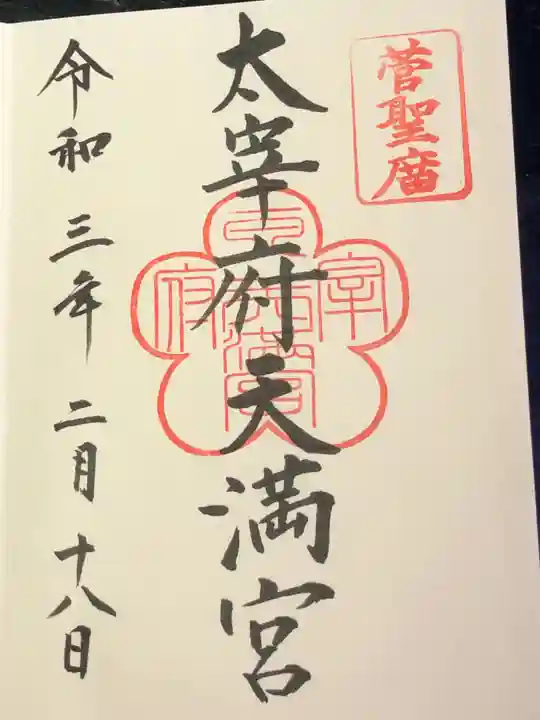 菅聖廟
太宰府天満宮
令和三年二月十八日